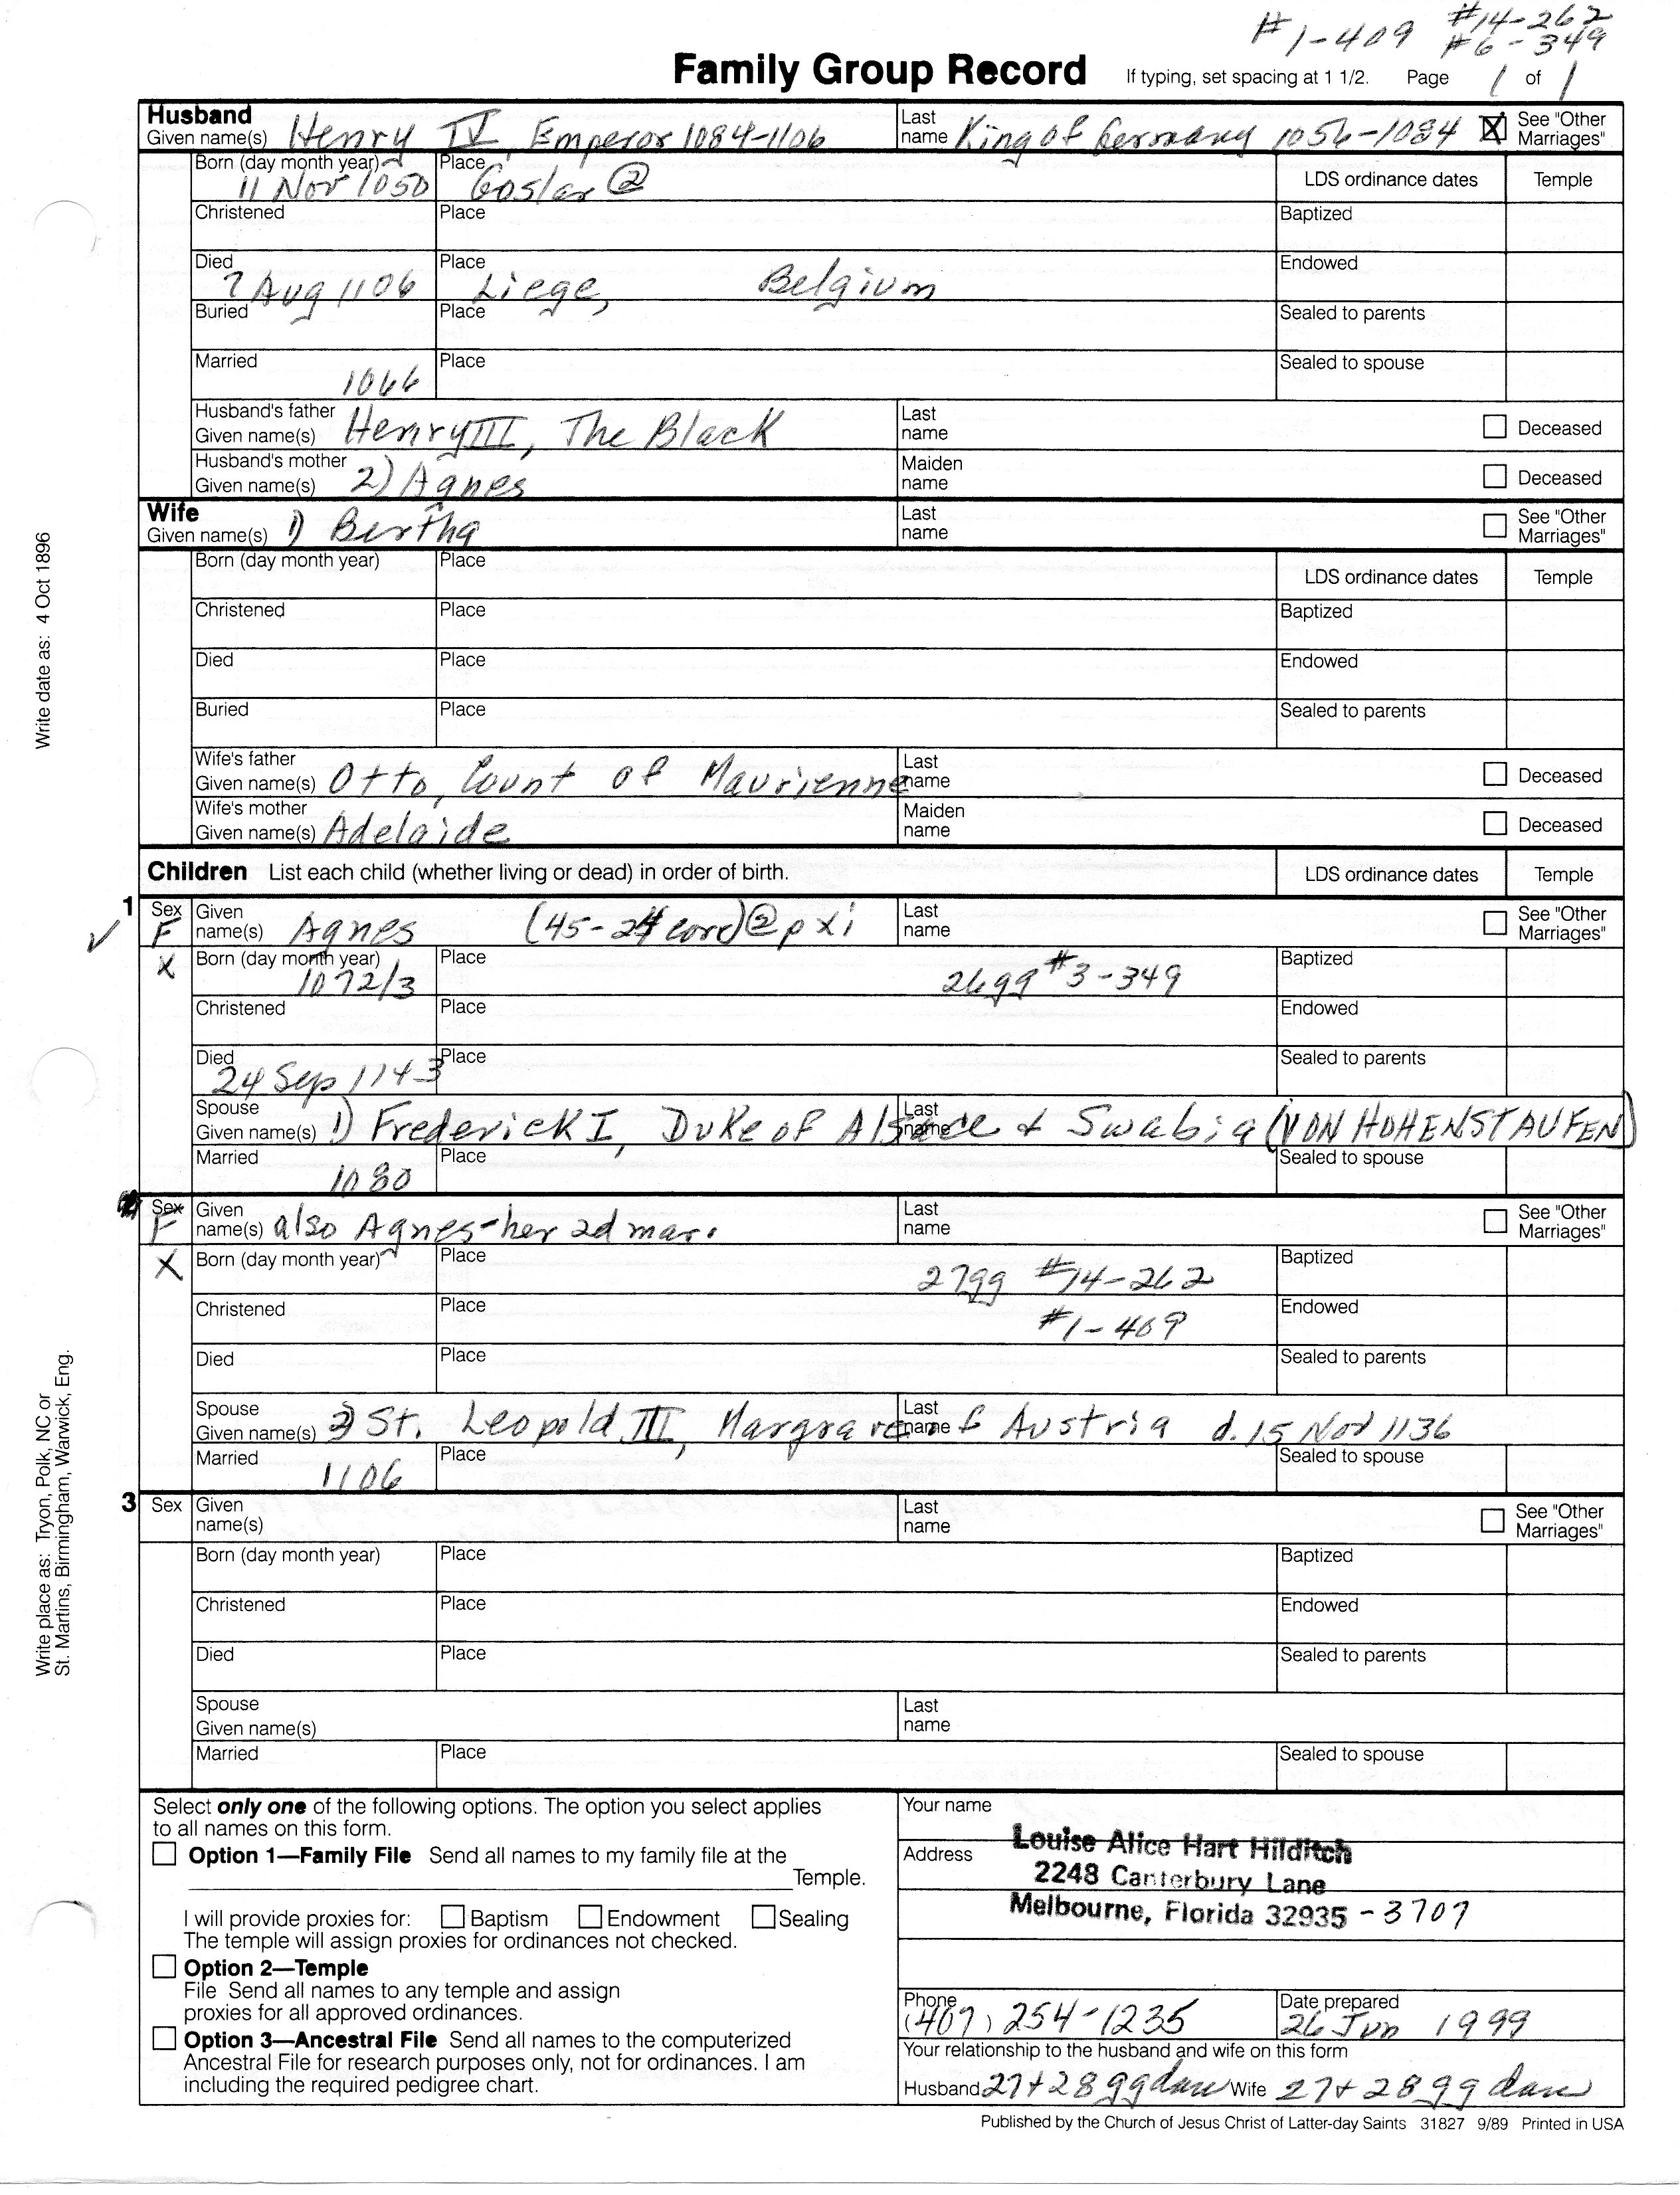 #1-409 #14-262
#6-349
Family Group Record If typing, set spacing at 1 1/2. Page 1 of 1
Husband
Given name(s) Henry IV, Emperor 1084-1106 Last name King of Germany 1056-1084 See "Other Marriages"
Born (day month year) 11 Nov 1050 Place Goslar @ LDS ordinance dates Temple
Christened Place Baptized
Died 7 Aug 1106 Place Liege, Belgium Endowed
Buried Place Sealed to parents
Married 1066 Place Sealed to spouse
Husband's father Given name(s) Henry III, The Black Last name Deceased
Husband's mother Given name(s) 2) Agnes Maiden name Deceased
Wife
Given name(s) 1) Bertha Last name See "Other Marriages"
Born (day month year) Place LDS ordinance dates Temple
Christened Place Baptized
Died Place Endowed
Buried Place Sealed to parents
Wife's father Given name(s) Otto, Count of Maurienne Last name Deceased
Wife's mother Given name(s) Adelaide Maiden name Deceased
Children List each child (whether living or dead) in order of birth. LDS ordinance dates Temple
1 Sex F Given name(s) Agnes (45-24 p xi Last name See "Other Marriages"
X Born (day month year) 1072/3 Place 26gg #3-349 Baptized
Christened Place Endowed
Died 24 Sep 1143 Place Sealed to parents
Spouse Given name(s) 1) Frederick I, Duke of Alsace & Swabia (VON HOHENSTAUFEN) Last name
Married 1080 Place Sealed to spouse
Sex F Given name(s) also Agnes-her 2d mar. Last name See "Other Marriages"
X Born (day month year) Place 27gg #14-262 Baptized
Christened Place #1-409 Endowed
Died Place Sealed to parents
Spouse Given name(s) 2) St. Leopold III, Margrave of Austria d. 15 Nov 1136 Last name
Married 1106 Place Sealed to spouse
3 Sex Given name(s) Last name See "Other Marriages"
Born (day month year) Place Baptized
Christened Place Endowed
Died Place Sealed to parents
Spouse Given name(s) Last name
Married Place Sealed to spouse
Select only one of the following options. The option you select applies
to all names on this form.
Option 1—Family File Send all names to my family file at the
Temple.
I will provide proxies for: Baptism Endowment Sealing
The temple will assign proxies for ordinances not checked.
Option 2—Temple
File Send all names to any temple and assign
proxies for all approved ordinances.
Option 3—Ancestral File Send all names to the computerized
Ancestral File for research purposes only, not for ordinances. I am
including the required pedigree chart.
Your name
Louise Alice Hart Hilditch
Address
2248 Canterbury Lane
Melbourne, Florida 32935 - 3707
Phone (407) 254-1235 Date prepared 26 Jun 1999
Your relationship to the husband and wife on this form
Husband 27+28 gg dau Wife 27+28 gg dau
Published by the Church of Jesus Christ of Latter-day Saints 31827 9/89 Printed in USA
Write date as: 4 Oct 1896
Write place as: Tryon, Polk, NC or
St. Martins, Birmingham, Warwick, Eng.